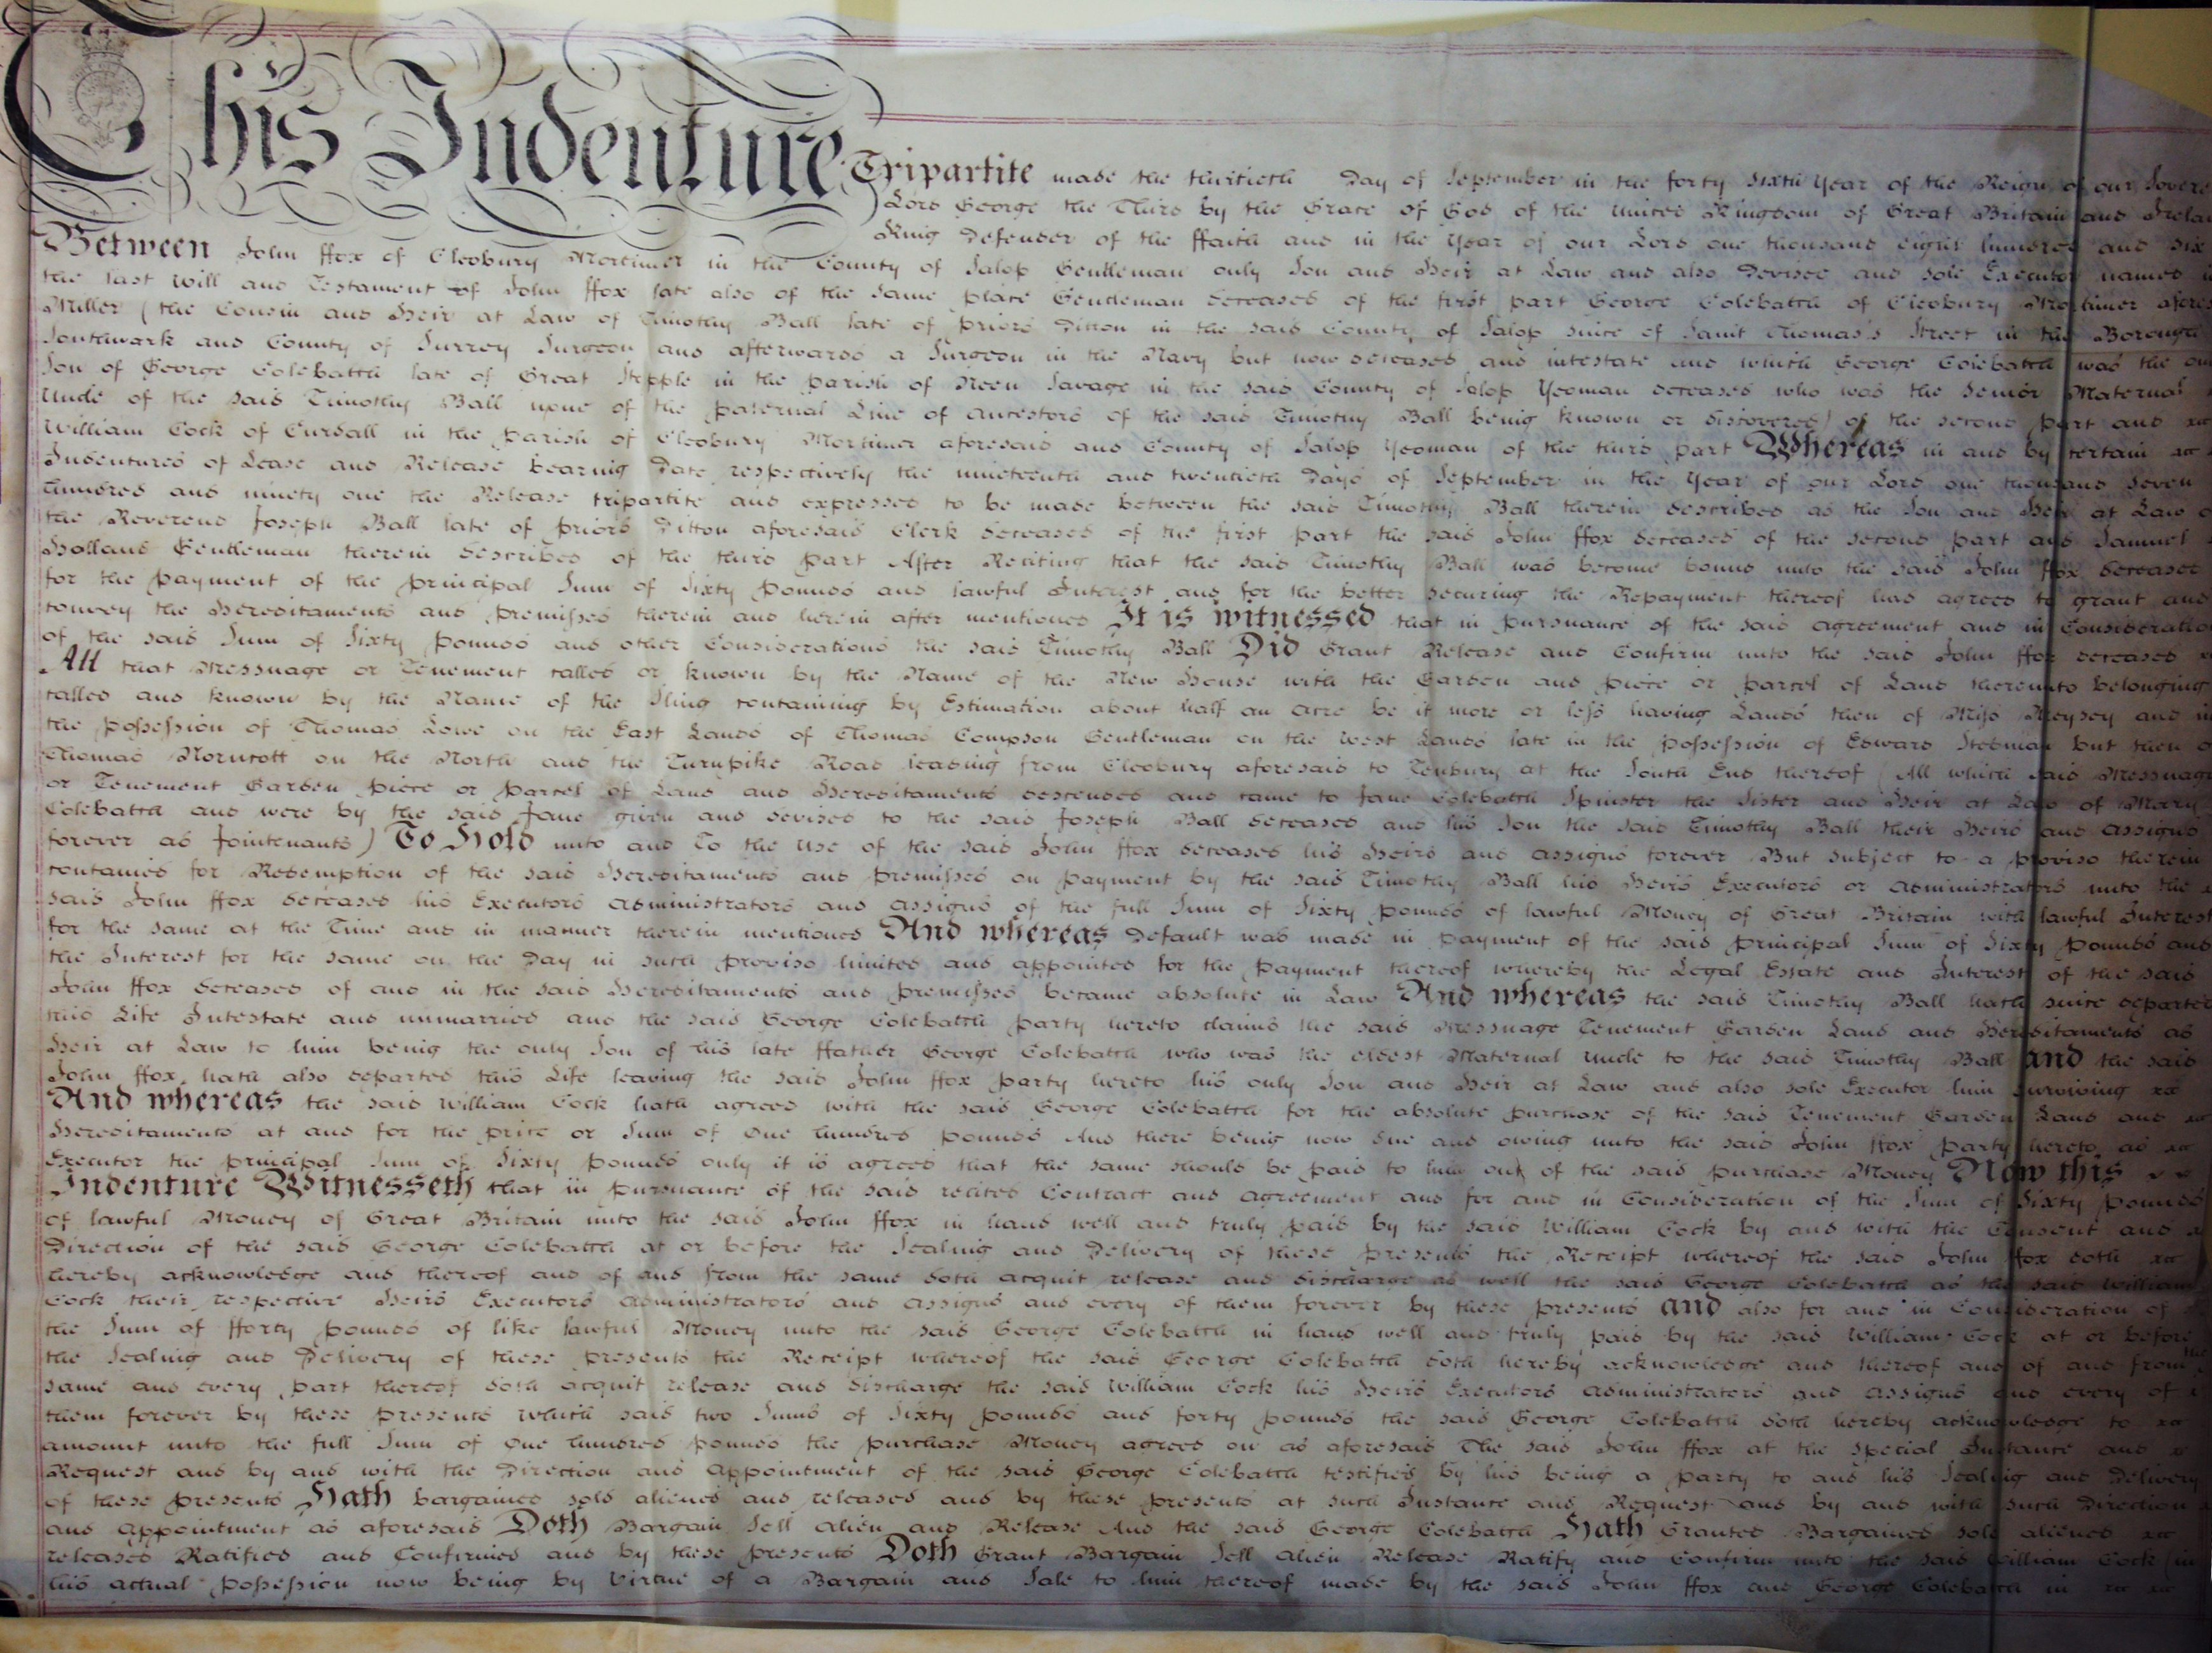 This Indenture Tripartite made the thirtieth Day of September in the forty sixth Year of the Reign of our Sovere
Lord George the Third by the Grace of God of the United Kingdom of Great Britain and Irelan
King Defender of the ffaith and in the Year of our Lord one thousand eight hundred and six
Between John ffox of Cleobury Mortimer in the County of Salop Gentleman only Son and Heir at Law and also Devisee and sole Executor named in
the last Will and Testament of John ffox late also of the same place Gentleman deceased of the first part George Colebatch of Cleobury Mortimer afores
Miller (the Cousin and Heir at Law of Timothy Ball late of Priors Ditton in the said County of Salop since of Saint Thomas's Street in the Borough
Southwark and County of Surrey Surgeon and afterwards a Surgeon in the Navy but now deceased and intestate and which George Colebatch was the on
Son of George Colebatch late of Great Stepple in the parish of Neen Savage in the said County of Salop Yeoman deceased who was the Senior Maternal
Uncle of the said Timothy Ball none of the paternal Line of ancestors of the said Timothy Ball being known or discovered) of the second part and
William Cock of Curdall in the parish of Cleobury Mortimer aforesaid and County of Salop Yeoman of the third part Whereas in and by certain
Indentures of Lease and Release bearing Date respectively the nineteenth and twentieth Days of September in the Year of our Lord one thousand seven
hundred and ninety one the Release tripartite and expressed to be made between the said Timothy Ball therein described as the Son and Heir at Law o
the Reverend Joseph Ball late of Priors Ditton aforesaid Clerk deceased of the first part the said John ffox deceased of the second part and Samuel
Holland Gentleman therein described of the third part After Reciting that the said Timothy Ball was become bound unto the said John ffox deceased
for the payment of the principal Sum of Sixty pounds and lawful Interest and for the better securing the Repayment thereof had agreed to grant and
convey the Hereditaments and premisses therein and herein after mentioned It is witnessed that in pursuance of the said agreement and in Consideratio
of the said Sum of Sixty pounds and other Considerations the said Timothy Ball Did Grant Release and Confirm unto the said John ffox deceased
All that Messuage or Tenement called or known by the Name of the New House with the Garden and piece or parcel of Land thereunto belonging
called and known by the Name of the Sling containing by Estimation about half an acre be it more or less having Lands then of Miss Meysey and in
the possession of Thomas Lowe on the East Lands of Thomas Compson Gentleman on the West Lands late in the possession of Edward Stedman but then o
Thomas Norncott on the North and the Turnpike Road leading from Cleobury aforesaid to Tenbury at the South End thereof (All which said Messuage
or Tenement Garden piece or parcel of Land and Hereditaments descended and came to Jane Colebatch Spinster the Sister and Heir at Law of Mary
Colebatch and were by the said Jane given and devised to the said Joseph Ball deceased and his Son the said Timothy Ball their Heirs and assigns
forever as Jointenants) To Hold unto and To the Use of the said John ffox deceased his Heirs and assigns forever But subject to a proviso therein
contained for Redemption of the said Hereditaments and premisses on payment by the said Timothy Ball his Heirs Executors or administrators unto the
said John ffox deceased his Executors administrators and assigns of the full Sum of Sixty pounds of lawful Money of Great Britain with lawful Interest
for the same at the Time and in manner therein mentioned And whereas Default was made in payment of the said principal Sum of Sixty pounds and
the Interest for the same on the Day in such proviso limited and appointed for the payment thereof whereby the Legal Estate and Interest of the said
John ffox deceased of and in the said Hereditaments and premisses became absolute in Law And whereas the said Timothy Ball hath since departed
this Life Intestate and unmarried and the said George Colebatch party hereto claims the said Messuage Tenement Garden Land and Hereditaments as
Heir at Law to him being the only Son of his late ffather George Colebatch who was the eldest Maternal Uncle to the said Timothy Ball and the said
John ffox hath also departed this Life leaving the said John ffox party hereto his only Son and Heir at Law and also sole Executor him surviving
And whereas the said William Cock hath agreed with the said George Colebatch for the absolute purchase of the said Tenement Garden Land and
Hereditaments at and for the price or Sum of One hundred pounds And there being now due and owing unto the said John ffox party hereto as
Executor the principal Sum of Sixty pounds only it is agreed that the same should be paid to him out of the said purchase Money Now this
Indenture Witnesseth that in pursuance of the said recited Contract and agreement and for and in Consideration of the Sum of Sixty pounds
of lawful Money of Great Britain unto the said John ffox in hand well and truly paid by the said William Cock by and with the Consent and
Direction of the said George Colebatch at or before the Sealing and Delivery of these presents the Receipt whereof the said John ffox doth
hereby acknowledge and thereof and of and from the same doth acquit release and discharge as well the said George Colebatch as the said William
Cock their respective Heirs Executors administrators and assigns and every of them forever by these presents and also for and in Consideration of
the Sum of fforty pounds of like lawful Money unto the said George Colebatch in hand well and truly paid by the said William Cock at or before
the Sealing and Delivery of these presents the Receipt whereof the said George Colebatch doth hereby acknowledge and thereof and of and from the
same and every part thereof doth acquit release and discharge the said William Cock his Heirs Executors administrators and assigns and every of
them forever by these presents which said two Sums of Sixty pounds and forty pounds the said George Colebatch doth hereby acknowledge to
amount unto the full Sum of One hundred pounds the purchase Money agreed on as aforesaid The said John ffox at the special Instance and
Request and by and with the Direction and appointment of the said George Colebatch testified by his being a party to and his Sealing and Delivery
of these presents Hath bargained sold aliened and released and by these presents at such Instance and Request and by and with such Direction
and appointment as aforesaid Doth Bargain Sell alien and Release And the said George Colebatch Hath Granted Bargained sold aliened
released Ratified and Confirmed and by these presents Doth Grant Bargain Sell alien Release Ratify and Confirm unto the said William Cock (in
his actual possession now being by Virtue of a Bargain and Sale to him thereof made by the said John ffox and George Colebatch in